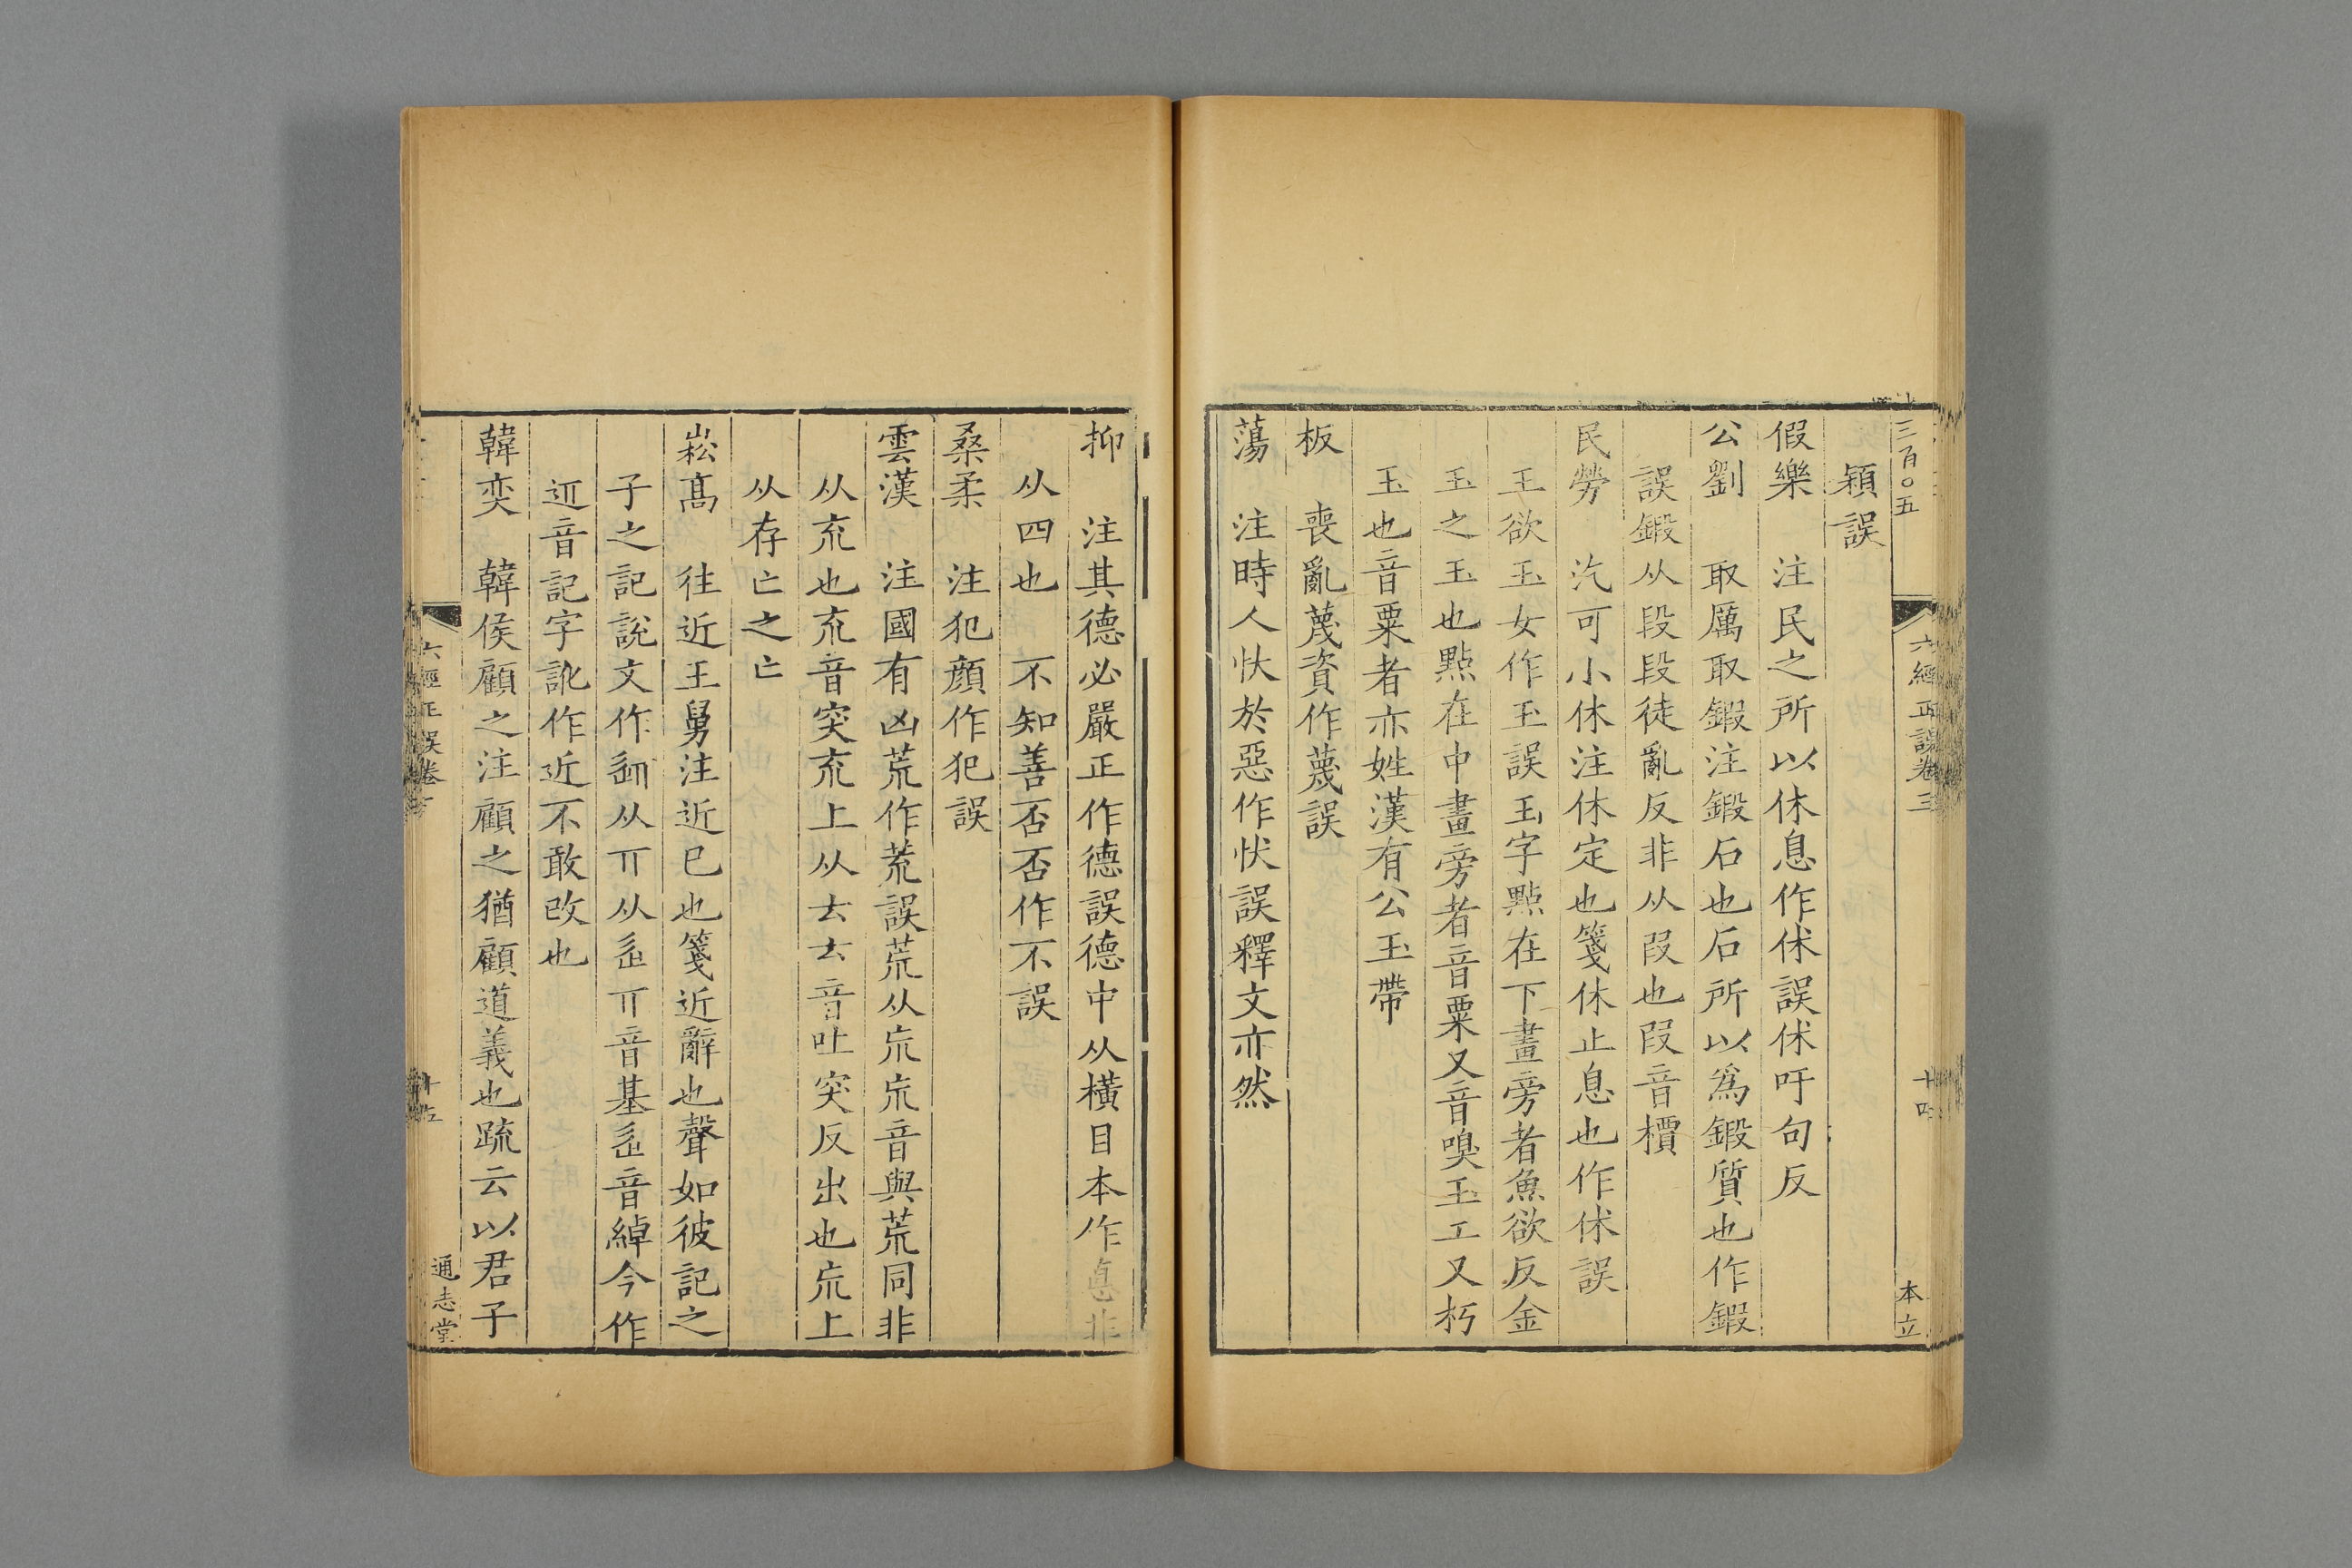 三百〇五
六經正誤卷三
十四
本立
穎誤
假樂 注民之所以休息作㳜誤㳜吁句反
公劉 取厲取鍛注鍛石也石所以爲鍛質也作鍜
誤鍛从段段徒亂反非从叚也叚音檟
民勞 汔可小休注休定也箋休止息也作㳜誤
王欲玉女作玊誤玉字點在下畫旁者魚欲反金
玉之玉也點在中畫旁者音粟又音嗅玊工又朽
玉也音粟者亦姓漢有公玊帶
板 喪亂蔑資作䔾誤
蕩 注時人忕於惡作忕誤釋文亦然
抑 注其德必嚴正作德誤德中从橫目本作悳非
从四也 不知善否否作不誤
桑柔 注犯顔作犯誤
雲漢 注國有凶荒作荒誤荒从㐬㐬音與荒同非
从㐬也㐬音突㐬上从𠫓𠫓音吐突反出也㐬上
从存亡之亡
崧髙 徃近王舅注近巳也箋近辭也聲如彼記之
子之記說文作𨒪从丌从辵丌音基辵音綽今作
䢋音記字訛作近不敢改也
韓奕 韓侯顧之注顧之猶顧道義也疏云以君子
六經正誤卷
十五
通志堂